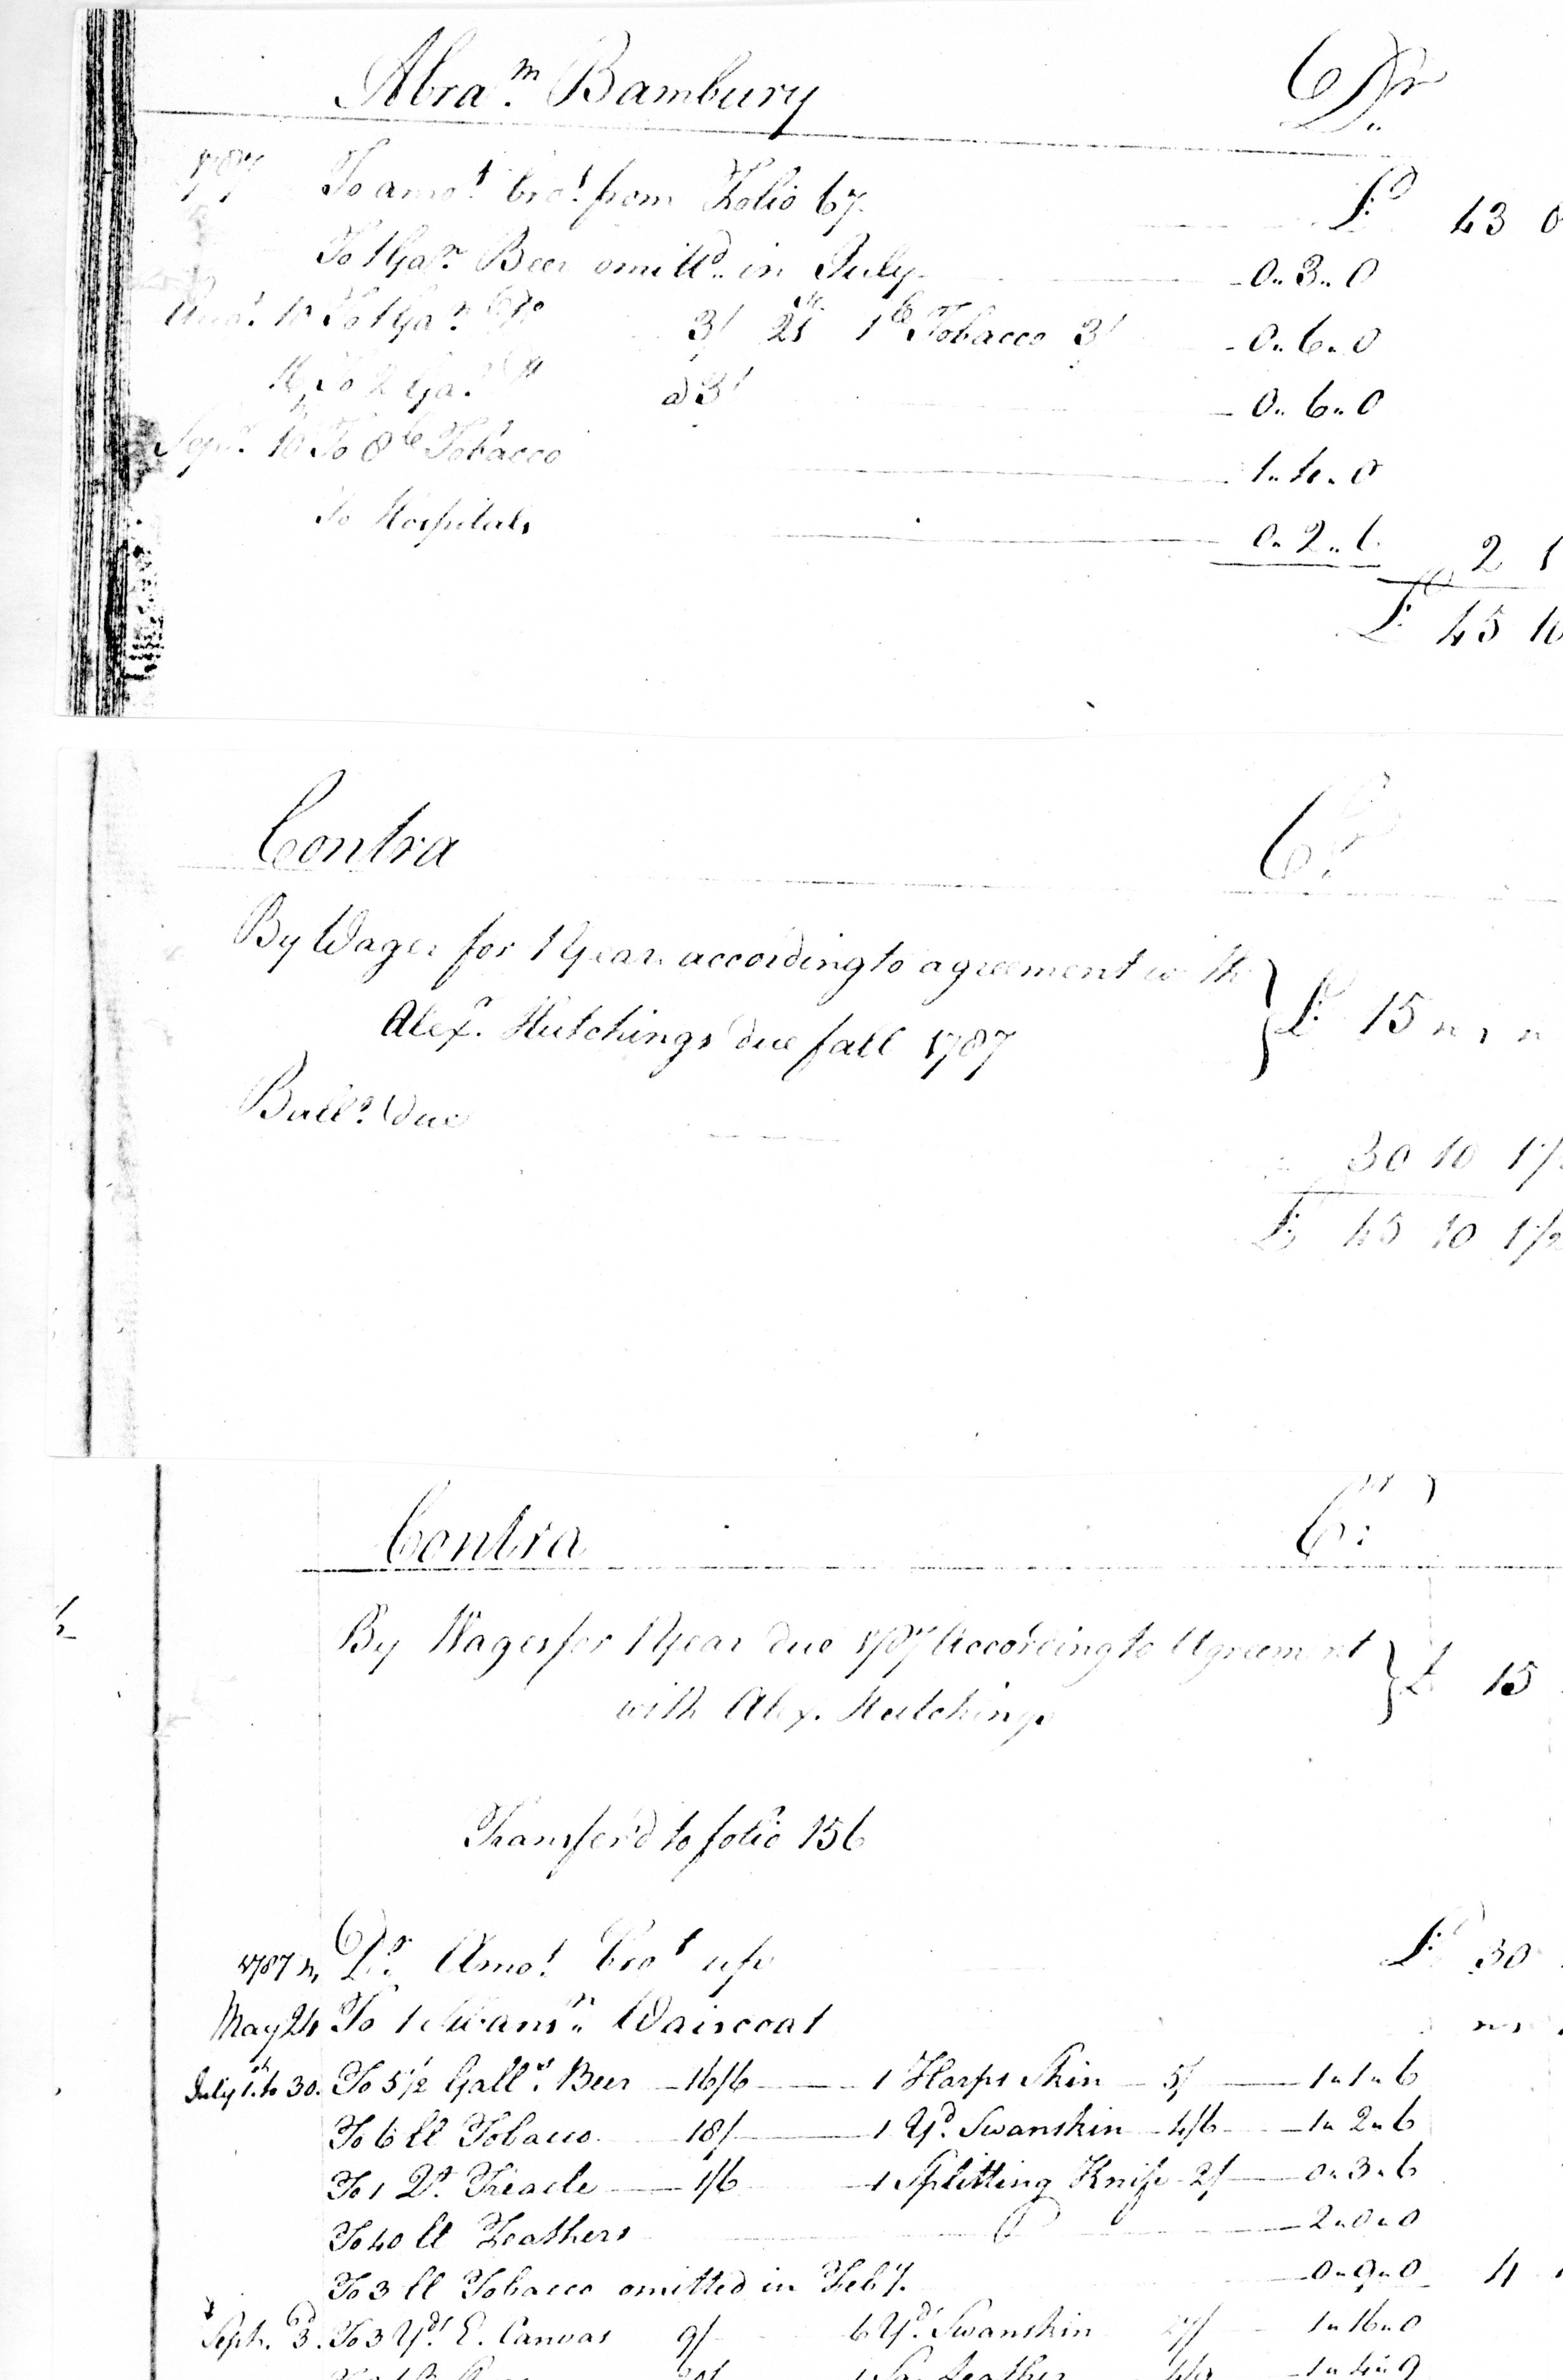 Abra.m Bambury Dr
1787 To amot. brot. from Folio 67. £ 43 0
To 1 Gan. Beer omittd. in July 0.. 3.. 0
10 To 1 Gan. Do 3/ 21 1 lb Tobacco 3/ 0.. 6.. 0
To 2 Gan. a 3/ 0.. 6.. 0
Sepr. 10 To 8 lb Tobacco 1.. 4.. 0
To Hospital, 0.. 2.. 6 2 1
£ 45 10
Contra Cr
By Wages for 1 Year according to agreement with
Alexr. Hutchings due fall 1787 } £ 15 " " "
Balla. due
30 10 1 1/2
£ 45 10 1 1/2
Contra Cr
By Wages for 1 Year due 1787 According to Agreement
with Alex. Hutchings } £ 15
Transferd to folio 156
1787 Dr. Amot. brot up £ 30
May 24 To 1 Swansn. Waiscoat
July 1st. to 30. To 5 1/2 Galls. Beer 16/6 1 Harps Skin 5/ 1 " 1 " 6
To 6 ll Tobacco 18/ 1 Yd. Swanskin 4/6 1 " 2 " 6
To 1 Qt. Treacle 1/6 1 Splitting Knife 2/ 0 " 3 " 6
To 40 ll Feathers 2 " 0 " 0
To 3 ll Tobacco omitted in Feby. 0 " 9 " 0 4
Septr. 3. To 3 Yds. E. Canvas 9/ 6 Yds. Swanskin 27/ 1 " 16 " 0
leather 1 " 4 " 9